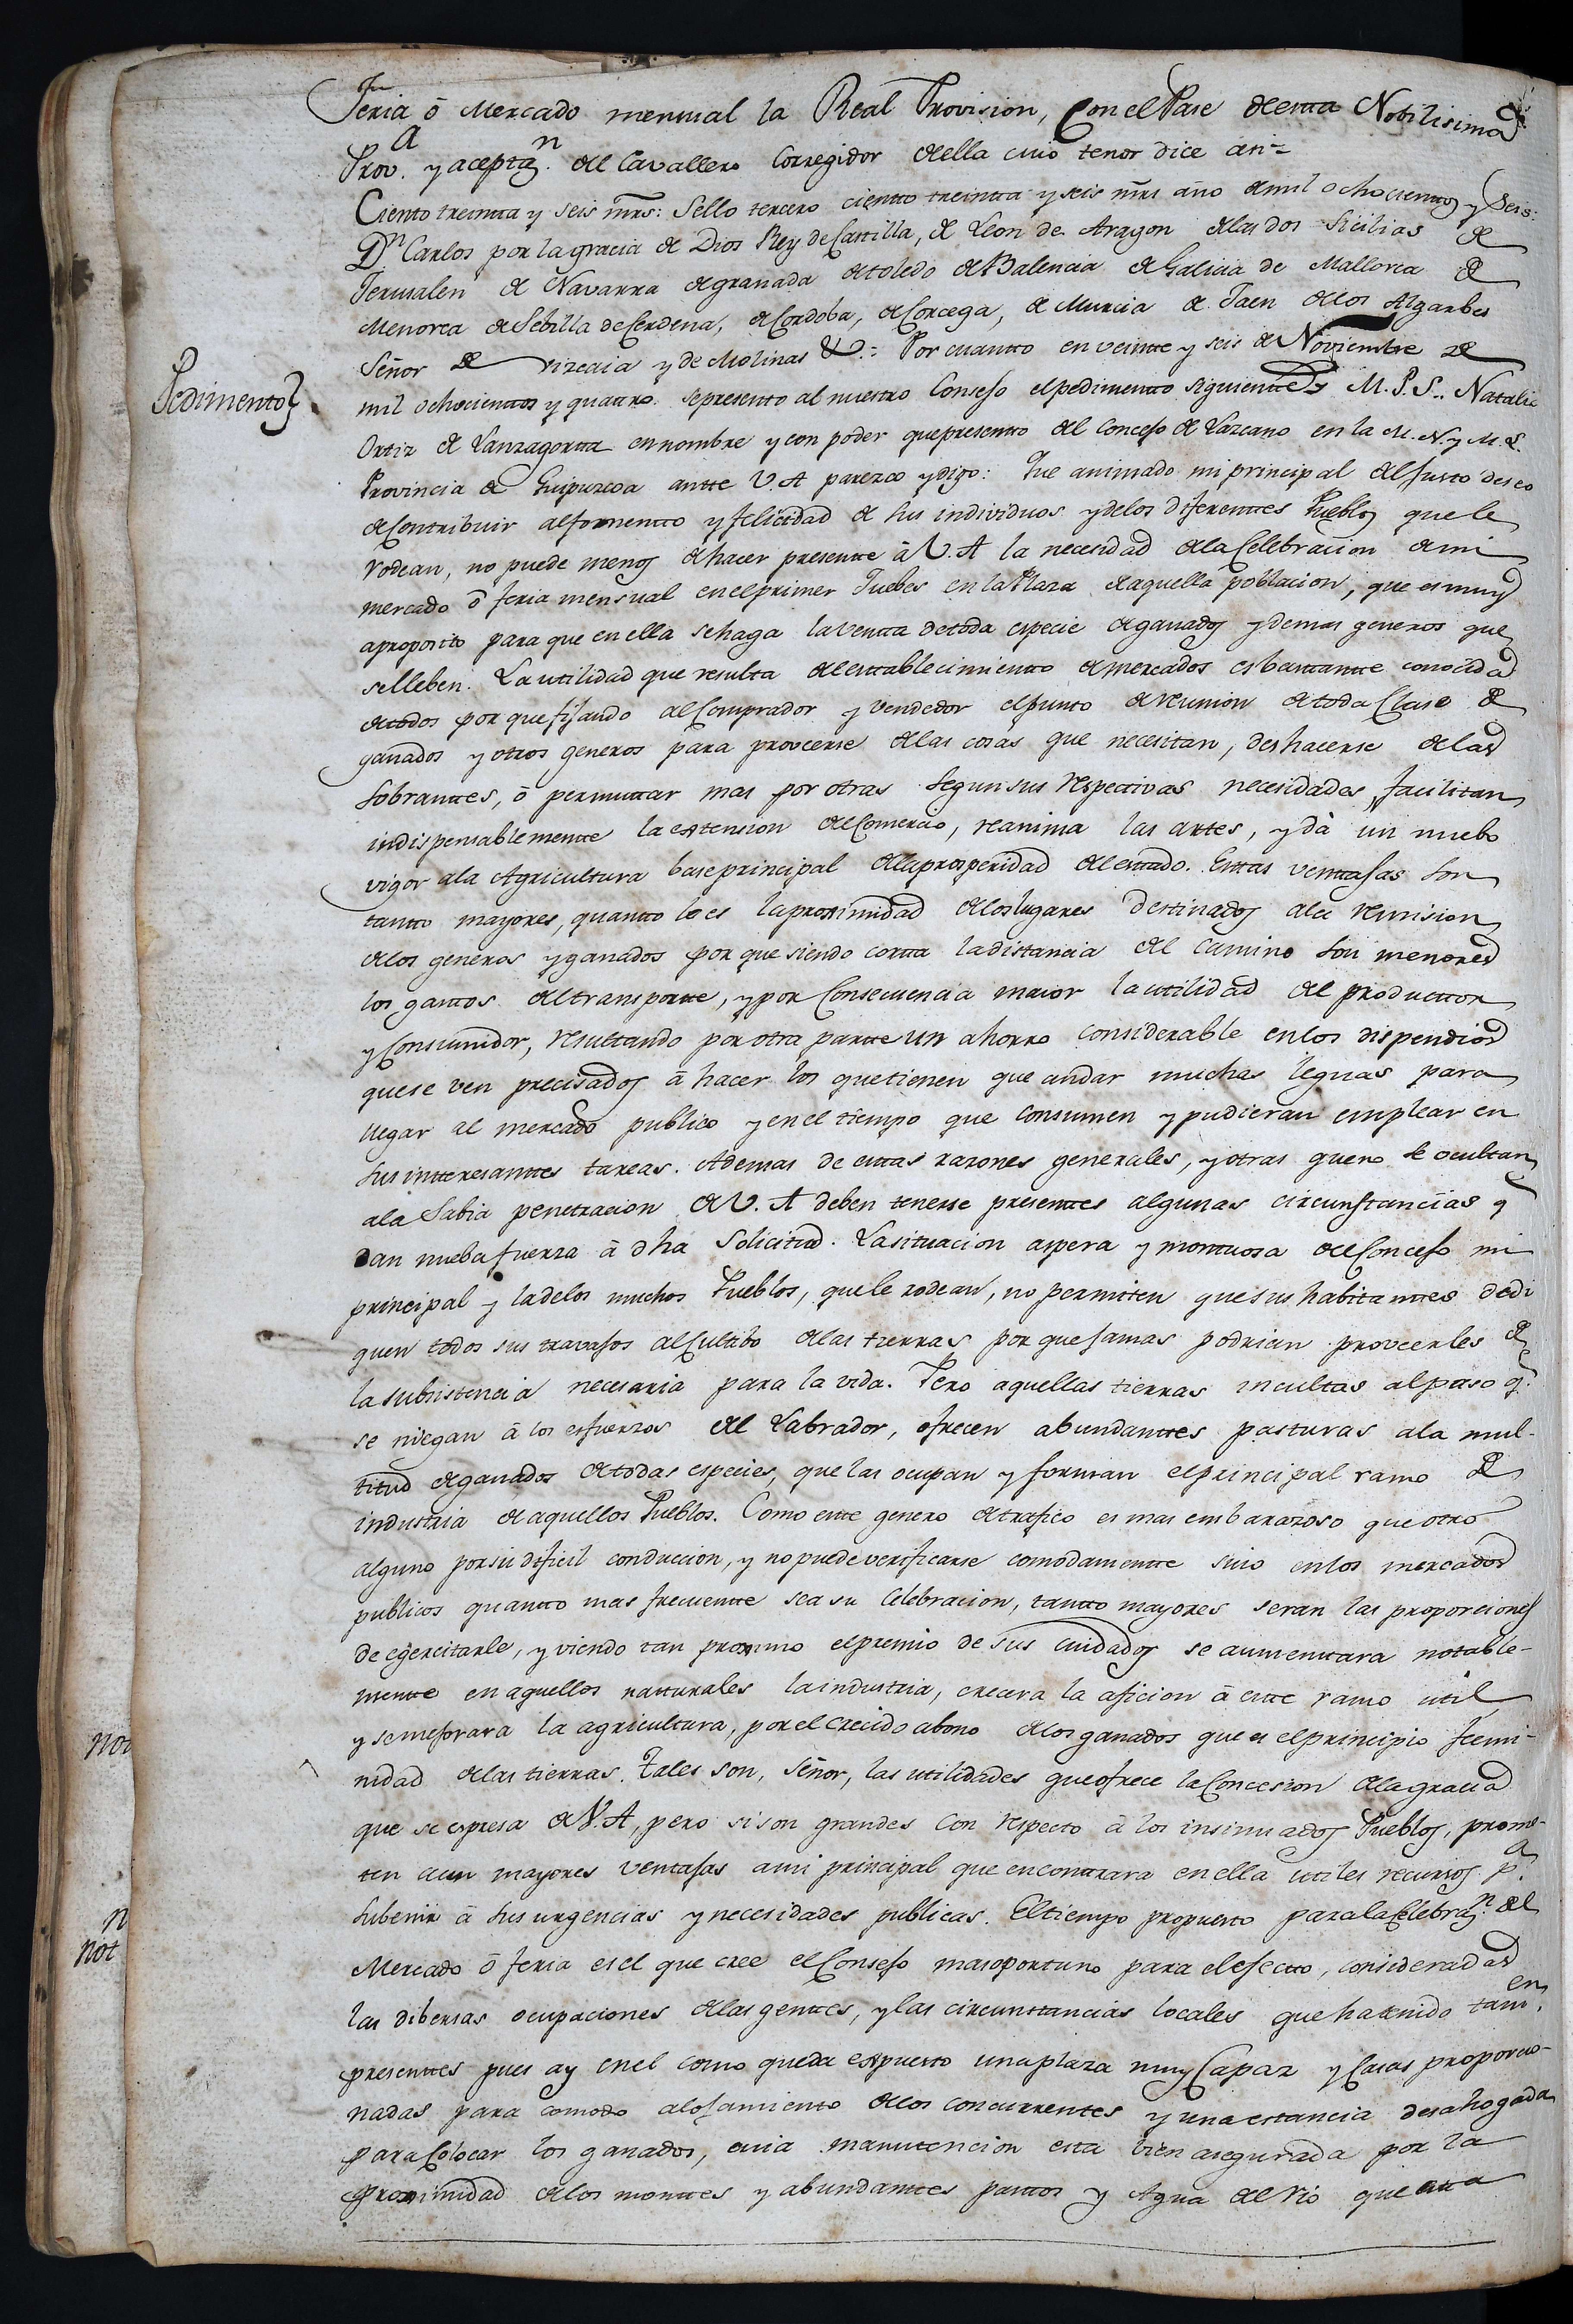 Feria ó Mercado mensual la Real Provision, Con el Pase de esta Nobilisima
Prov.a y aceptaz.n del Cavallero Corregidor de ella cuio tenor dice asi=
Ciento treinta y seis mrs: Sello tercero ciento treinta y seis mrs año de mil ochocientos y Seis:
Dn Carlos por la gracia de Dios Rey de Castilla, de Leon de Aragon de las dos Sicilias de
Jerusalen de Navarra de granada de toledo de Balencia de Galicia de Mallorca de
Menorca de Sebilla de Cerdena, de Cordoba, de Corcega, de Murcia de Jaen de los Algarbes
Señor de vizcaia y de Molinas &.= Por cuanto en veinte y seis de Noviembre de
Pedimento
mil ochocientos y quatro se presento al nuestro Consejo el pedimento siguiente M.P.S.. Natalio
Ortiz de Lanzagorta en nombre y con poder que presento del Concejo de Lazcano en la M.N. y M.L.
Provincia de Guipuzcoa ante V.A parezco y digo: Que animado mi principal del justo deseo
de Contribuir al fomento y felicidad de sus individuos y de los diferentes Pueblos que le
rodean, no puede menos de hacer presente á V.A la necesidad de la Celebracion de un
mercado ó feria mensual en el primer Juebes en la Plaza de aquella poblacion, que es muy
aproposito para que en ella se haga la venta de toda especie de ganados y demas generos que
se lleben. La utilidad que resulta del establecimiento de mercados es bastante conocida
de todos por que fijando al Comprador y vendedor el punto de reunion de toda Clase de
ganados y otros generos para proveerse de las cosas que necesitan, deshacerse de las
sobrantes, ó permutar mas por otras segun sus respectivas necesidades, facilitan
indispensablemente la extension del Comercio, reanima las artes, y dà un nuebo
vigor ala Agricultura base principal de la prosperidad del estado. Estas ventajas son
tanto mayores, quanto lo es la proximidad de los lugares destinados ala reunision
de los generos y ganados por que siendo corta la distancia del camino son menores
los gastos del transporte, y por Consecuencia maior la utilidad del productor
y Consumidor, resultando por otra parte un ahorro considerable en los dispendios
que se ven precisados á hacer los que tienen que andar muchas leguas para
llegar al mercado publico y en el tiempo que consumen y pudieran emplear en
sus interesantes tareas. Ademas de estas razones generales, y otras que no se ocultan
ala Sabia penetracion de V.A deben tenerse presentes algunas circunstancias q
dan nueba fuerza á dha Solicitud. La situacion aspera y montuosa del Concejo mi
principal y la de los muchos Pueblos, que le rodean, no permiten que sus habitantes dedi
quen todos sus travajos al Cultibo de las tierras por que jamas podrian proveerles de
la subsistencia necesaria para la vida. Pero aquellas tierras incultas al paso q.e
se niegan á los esfuerzos del Labrador, ofrecen abundantes pasturas ala mul-
titud de ganados de todas especies, que las ocupan y forman el principal ramo de
industria de aquellos Pueblos. Como este genero de trafico es mas embarazoso que otro
alguno por su dificil conduccion, y no puede verificarse comodamente sino en los mercados
publicos quanto mas frecuente sea su Celebracion, tanto mayores seran las proporciones
de egercitarle, y viendo tan proximo el premio de sus cuidados se aumentara notable-
mente en aquellos naturales la industria, crecera la aficion á este ramo util
y se mejorara la agricultura, por el crecido abono de los ganados que es el principio feemi-
nidad de las tierras. Tales son, Señor, las utilidades que ofrece la Concesion de la gracia
que se expresa de V.A, pero si son grandes con respecto á los insinuados Pueblos, prome-
ten aun mayores ventajas a mi principal que encontrara en ella utiles recursos p.a
subenir á sus urgencias y necesidades publicas. El tiempo propuesto para la Celebraz.n del
Mercado ó feria es el que cree el Consejo mas oportuno para el efecto, consideradas
las dibersas ocupaciones de las gentes, y las circunstancias locales que ha tenido tam.en
presentes pues ay en el como queda expuesto una plaza muy Capaz y Casas proporcio-
nadas para comodo alojamiento de los concurrentes y una estancia desahogada
para Colocar los ganados, cuia manutencion esta bien asegurada por la
proximidad de los montes y abundantes pastos y Agua del rio que esta
not
n
not